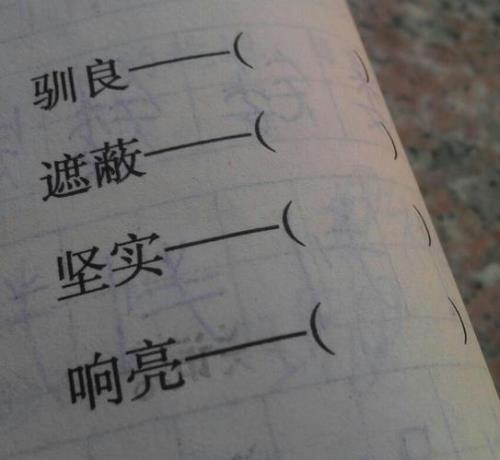 驯良——( )
遮蔽——( )
坚实——( )
响亮——( )